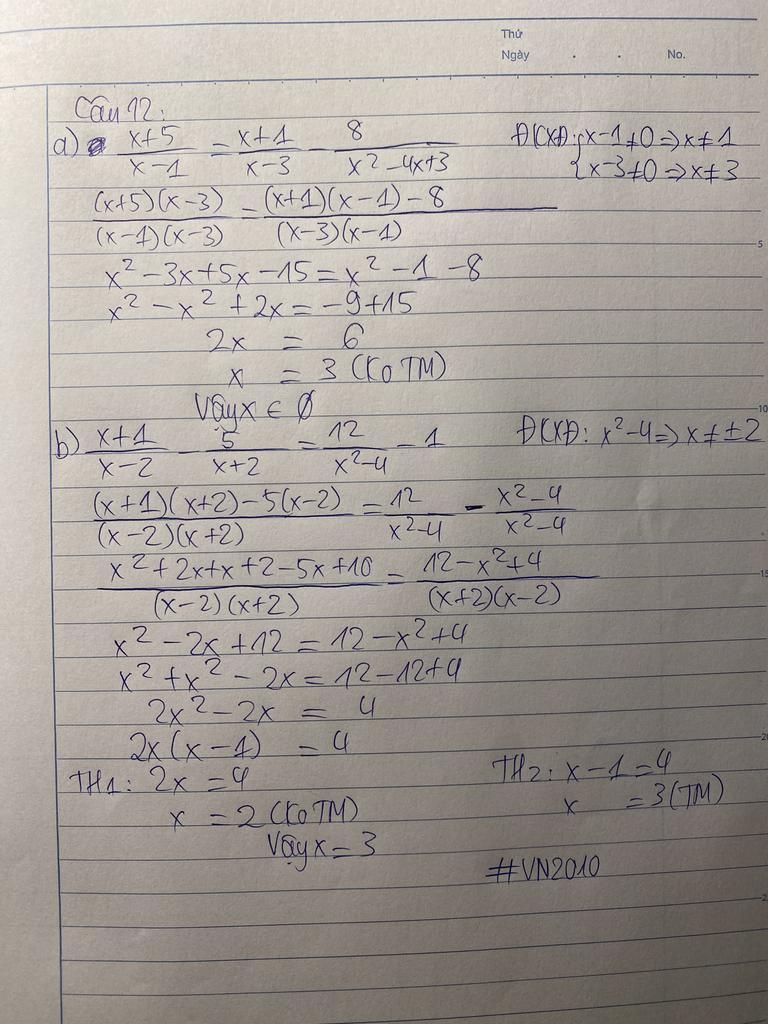 Thứ
Ngày . . No.
Câu 12:
a) x+5/x-1 = x+1/x-3 - 8/x²-4x+3 ĐCXĐ: {x-1≠0 => x≠1
{x-3≠0 => x≠3
(x+5)(x-3)/(x-1)(x-3) = (x+1)(x-1)-8/(x-3)(x-1)
5
x²-3x+5x-15 = x²-1-8
x²-x²+2x = -9+15
2x = 6
x = 3 (Ko TM)
Vậy x ∈ Ø
10
b) x+1/x-2 - 5/x+2 = 12/x²-4 - 1 ĐCXĐ: x²-4 => x≠±2
(x+1)(x+2)-5(x-2)/(x-2)(x+2) = 12/x²-4 - x²-4/x²-4
x²+2x+x+2-5x+10/(x-2)(x+2) = 12-x²+4/(x+2)(x-2)
15
x²-2x+12 = 12-x²+4
x²+x²-2x = 12-12+4
2x²-2x = 4
2x(x-1) = 4
TH1: 2x = 4 TH2: x-1 = 4
x = 2 (Ko TM) x = 3 (TM)
Vậy x = 3
#VN2010